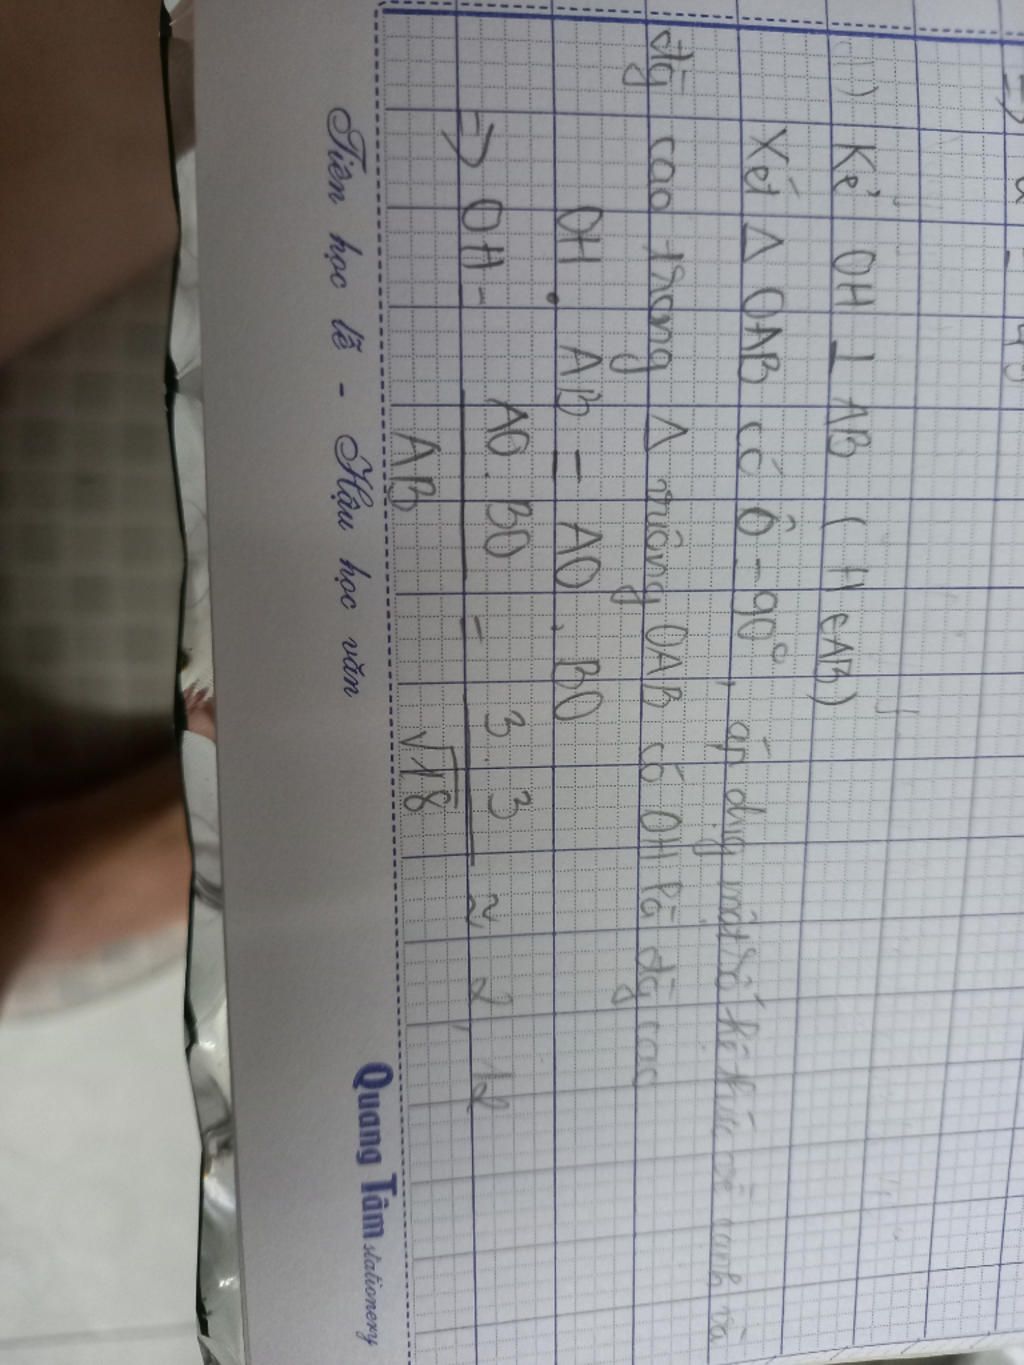 d) Kẻ OH ⊥ AB ( H ∈ AB)
Xét Δ OAB có Ô = 90°, áp dụng một số hệ thức về cạnh và
đg cao trong Δ vuông OAB có OH là đg cao
OH . AB = AO . BO
=> OH = AO . BO / AB = 3 . 3 / √18 ≈ 2,12
Tiên học lễ - Hậu học văn
Quang Tâm stationery